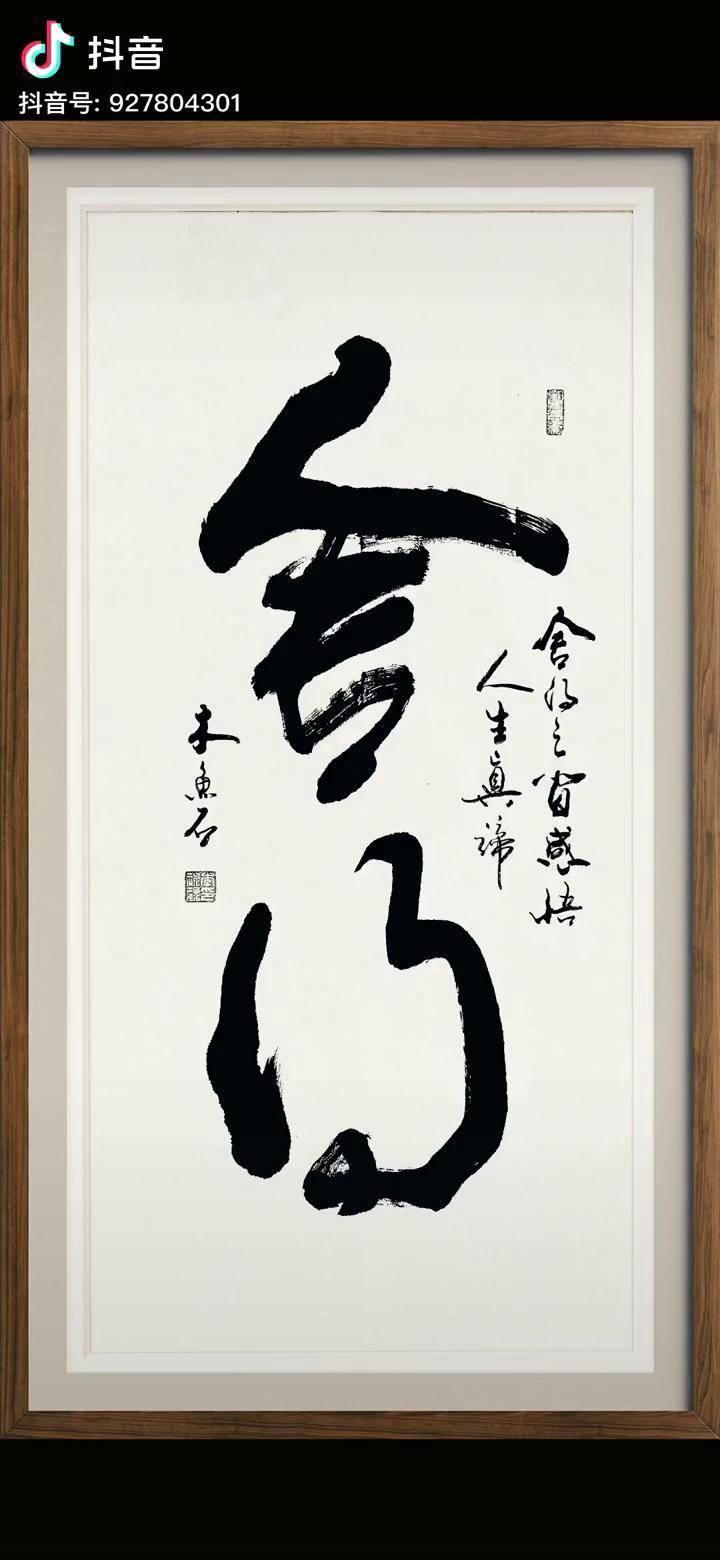 抖音
抖音号: 927804301
舍得
舍得之間感悟
人生真諦
木魚石